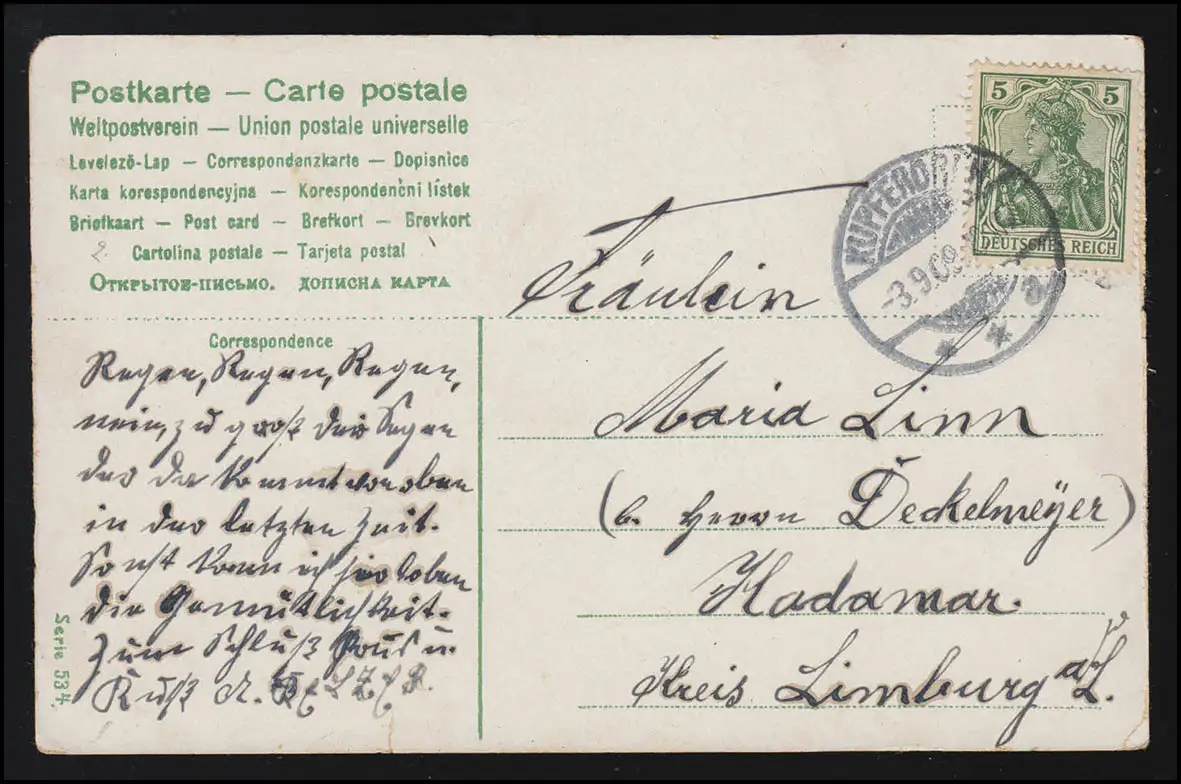 Postkarte — Carte postale
Weltpostverein — Union postale universelle
Levelező-Lap — Correspondenzkarte — Dopisnice
Karta korespondencyjna — Korespondenční lístek
Briefkaart — Post card — Brefkort — Brevkort
2.
Cartolina postale — Tarjeta postal
Открытое-письмо. дописна карта
5 5
DEUTSCHES REICH
KUPFERDREH
-3.9.09
* *
Correspondence
Regen, Regen, Regen,
nein, zu groß der Segen
der da kommt von oben
in der letzten Zeit.
Sonst kann ich hier loben
die Gemütlichkeit.
Zum Schluß Grus u.
Kuß A.
Serie 534.
Fräulein
Maria Linn
(b. Herrn Deckelmeÿer)
Hadamar.
Kreis Limburg a/L.